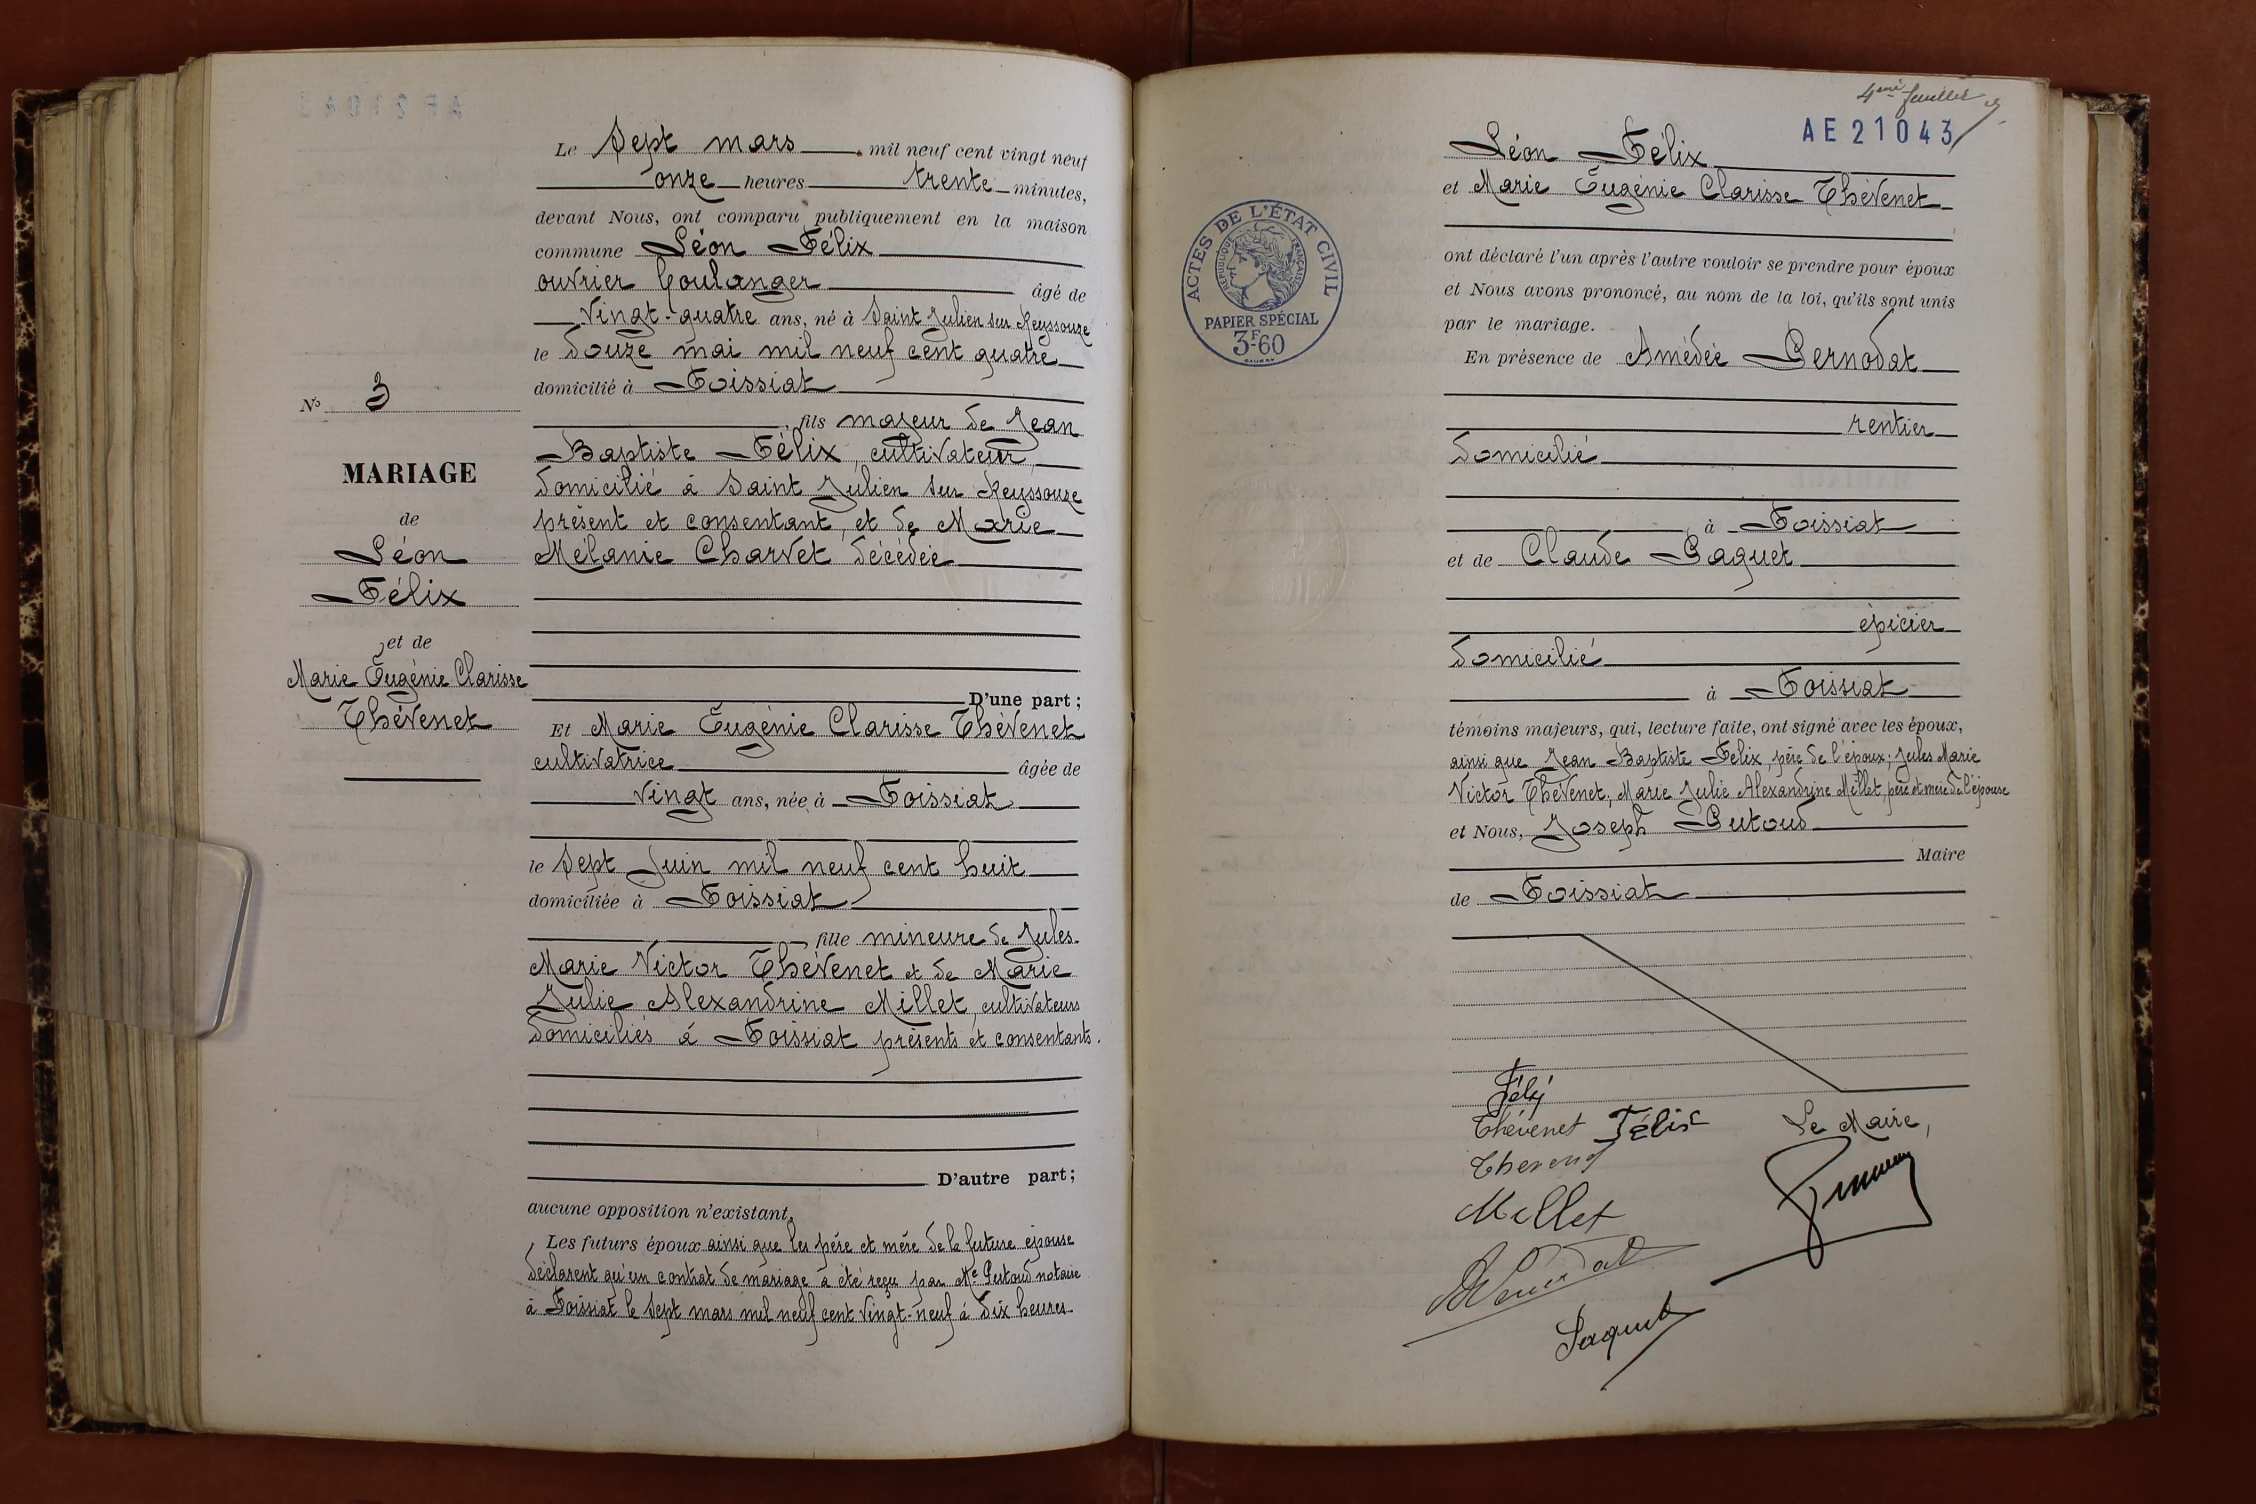 Le Sept mars mil neuf cent vingt neuf
onze heures trente minutes,
devant Nous, ont comparu publiquement en la maison
commune Léon Félix
ouvrier boulanger âgé de
Vingt-quatre ans, né à Saint Julien sur Reyssouze
le Douze mai mil neuf cent quatre
domicilié à Foissiat
fils majeur de Jean
Baptiste Félix, cultivateur,
domicilié à Saint Julien sur Reyssouze
présent et consentant, et de Marie
Mélanie Charvet décédée
D'une part;
Et Marie Eugénie Clarisse Thévenet
cultivatrice âgée de
Vingt ans, née à Foissiat
le Sept Juin mil neuf cent huit
domiciliée à Foissiat
fille mineure de Jules
Marie Victor Thévenet et de Marie
Julie Alexandrine Millet, cultivateurs
domiciliés à Foissiat présents et consentants.
D'autre part;
aucune opposition n'existant,
Les futurs époux ainsi que les père et mère de la future épouse
déclarent qu'un contrat de mariage a été reçu par Me Putoud notaire
à Foissiat le Sept mars mil neuf cent vingt-neuf à dix heures
No 3
MARIAGE
de
Léon
Félix
et de
Marie Eugénie Clarisse
Thévenet
4eme feuillet
AE 21043
ACTES DE L'ÉTAT CIVIL
RÉPUBLIQUE FRANÇAISE
PAPIER SPÉCIAL
3F60
Léon Félix
et Marie Eugénie Clarisse Thévenet
ont déclaré l'un après l'autre vouloir se prendre pour époux
et Nous avons prononcé, au nom de la loi, qu'ils sont unis
par le mariage.
En présence de Amédée Pernodat
rentier
domicilié
à Foissiat
et de Claude Paquet
épicier
domicilié
à Foissiat
témoins majeurs, qui, lecture faite, ont signé avec les époux,
ainsi que Jean Baptiste Félix, père de l'époux; Jules Marie
Victor Thévenet, Marie Julie Alexandrine Millet, père et mère de l'épouse
et Nous, Joseph Putoud
Maire
de Foissiat
Félix
Thévenet Félix
Le Maire,
Thevenet
Millet
Paquet